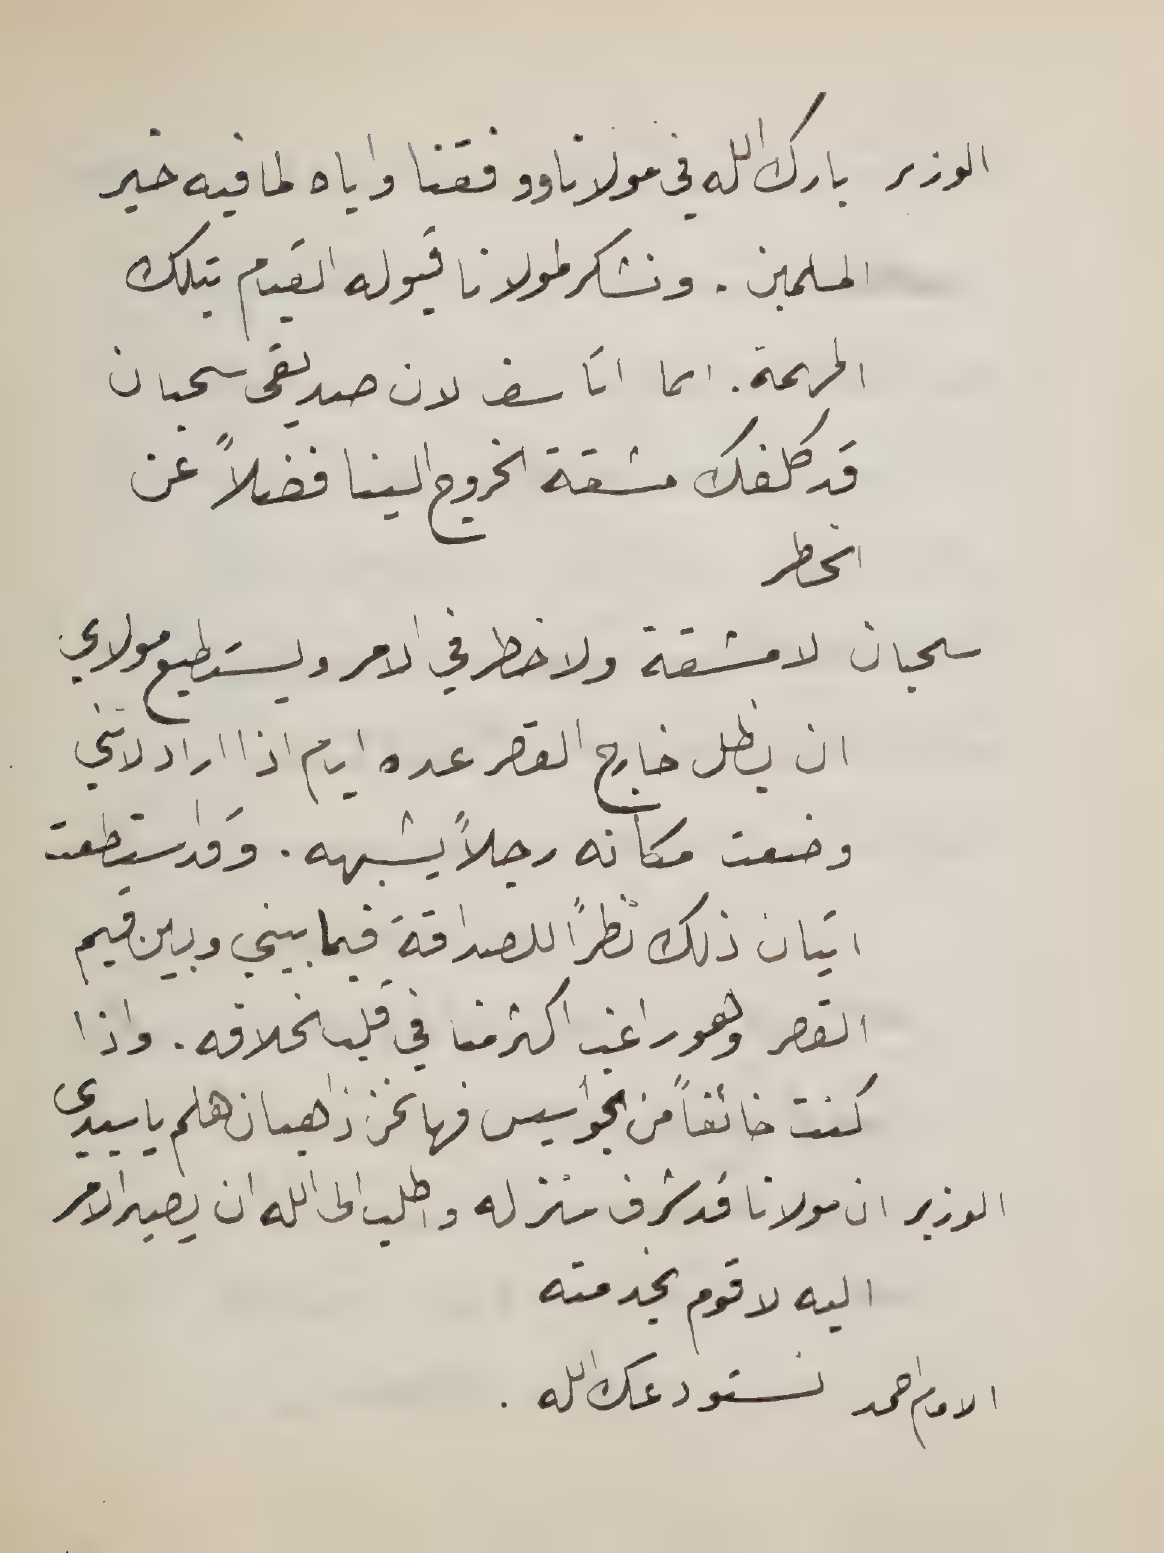 الوزير بارك الله في مولانا ووفقنا واياه لما فيه خير
المسلمين . ونشكر لمولانا قبوله القيام بتلك
المهمة . انما اتأسف لان صديقى سحبان
قد كلفك مشقة الخروج الينا فضلاً عن
الخطر
سحبان لا مشقة ولا خطر في الامر ويستطيع مولاي
ان يظل خارج القصر عده ايام اذا اراد لانني
وضعت مكانه رجلاً يشبهه . وقد استطعت
اتيان ذلك نظراً للصداقة فيما بيني وبين قيم
القصر وهو راغب اكثر منا في قلب الخلافه . واذا
كنت خائفاً من الجواسيس فها نحن ذاهبان هلم يا سيدى
الوزير ان مولانا قد شرف منزله واطلب الى الله ان يصير الامر
اليه لاقوم بخدمته
الامام احمد نستودعك الله .